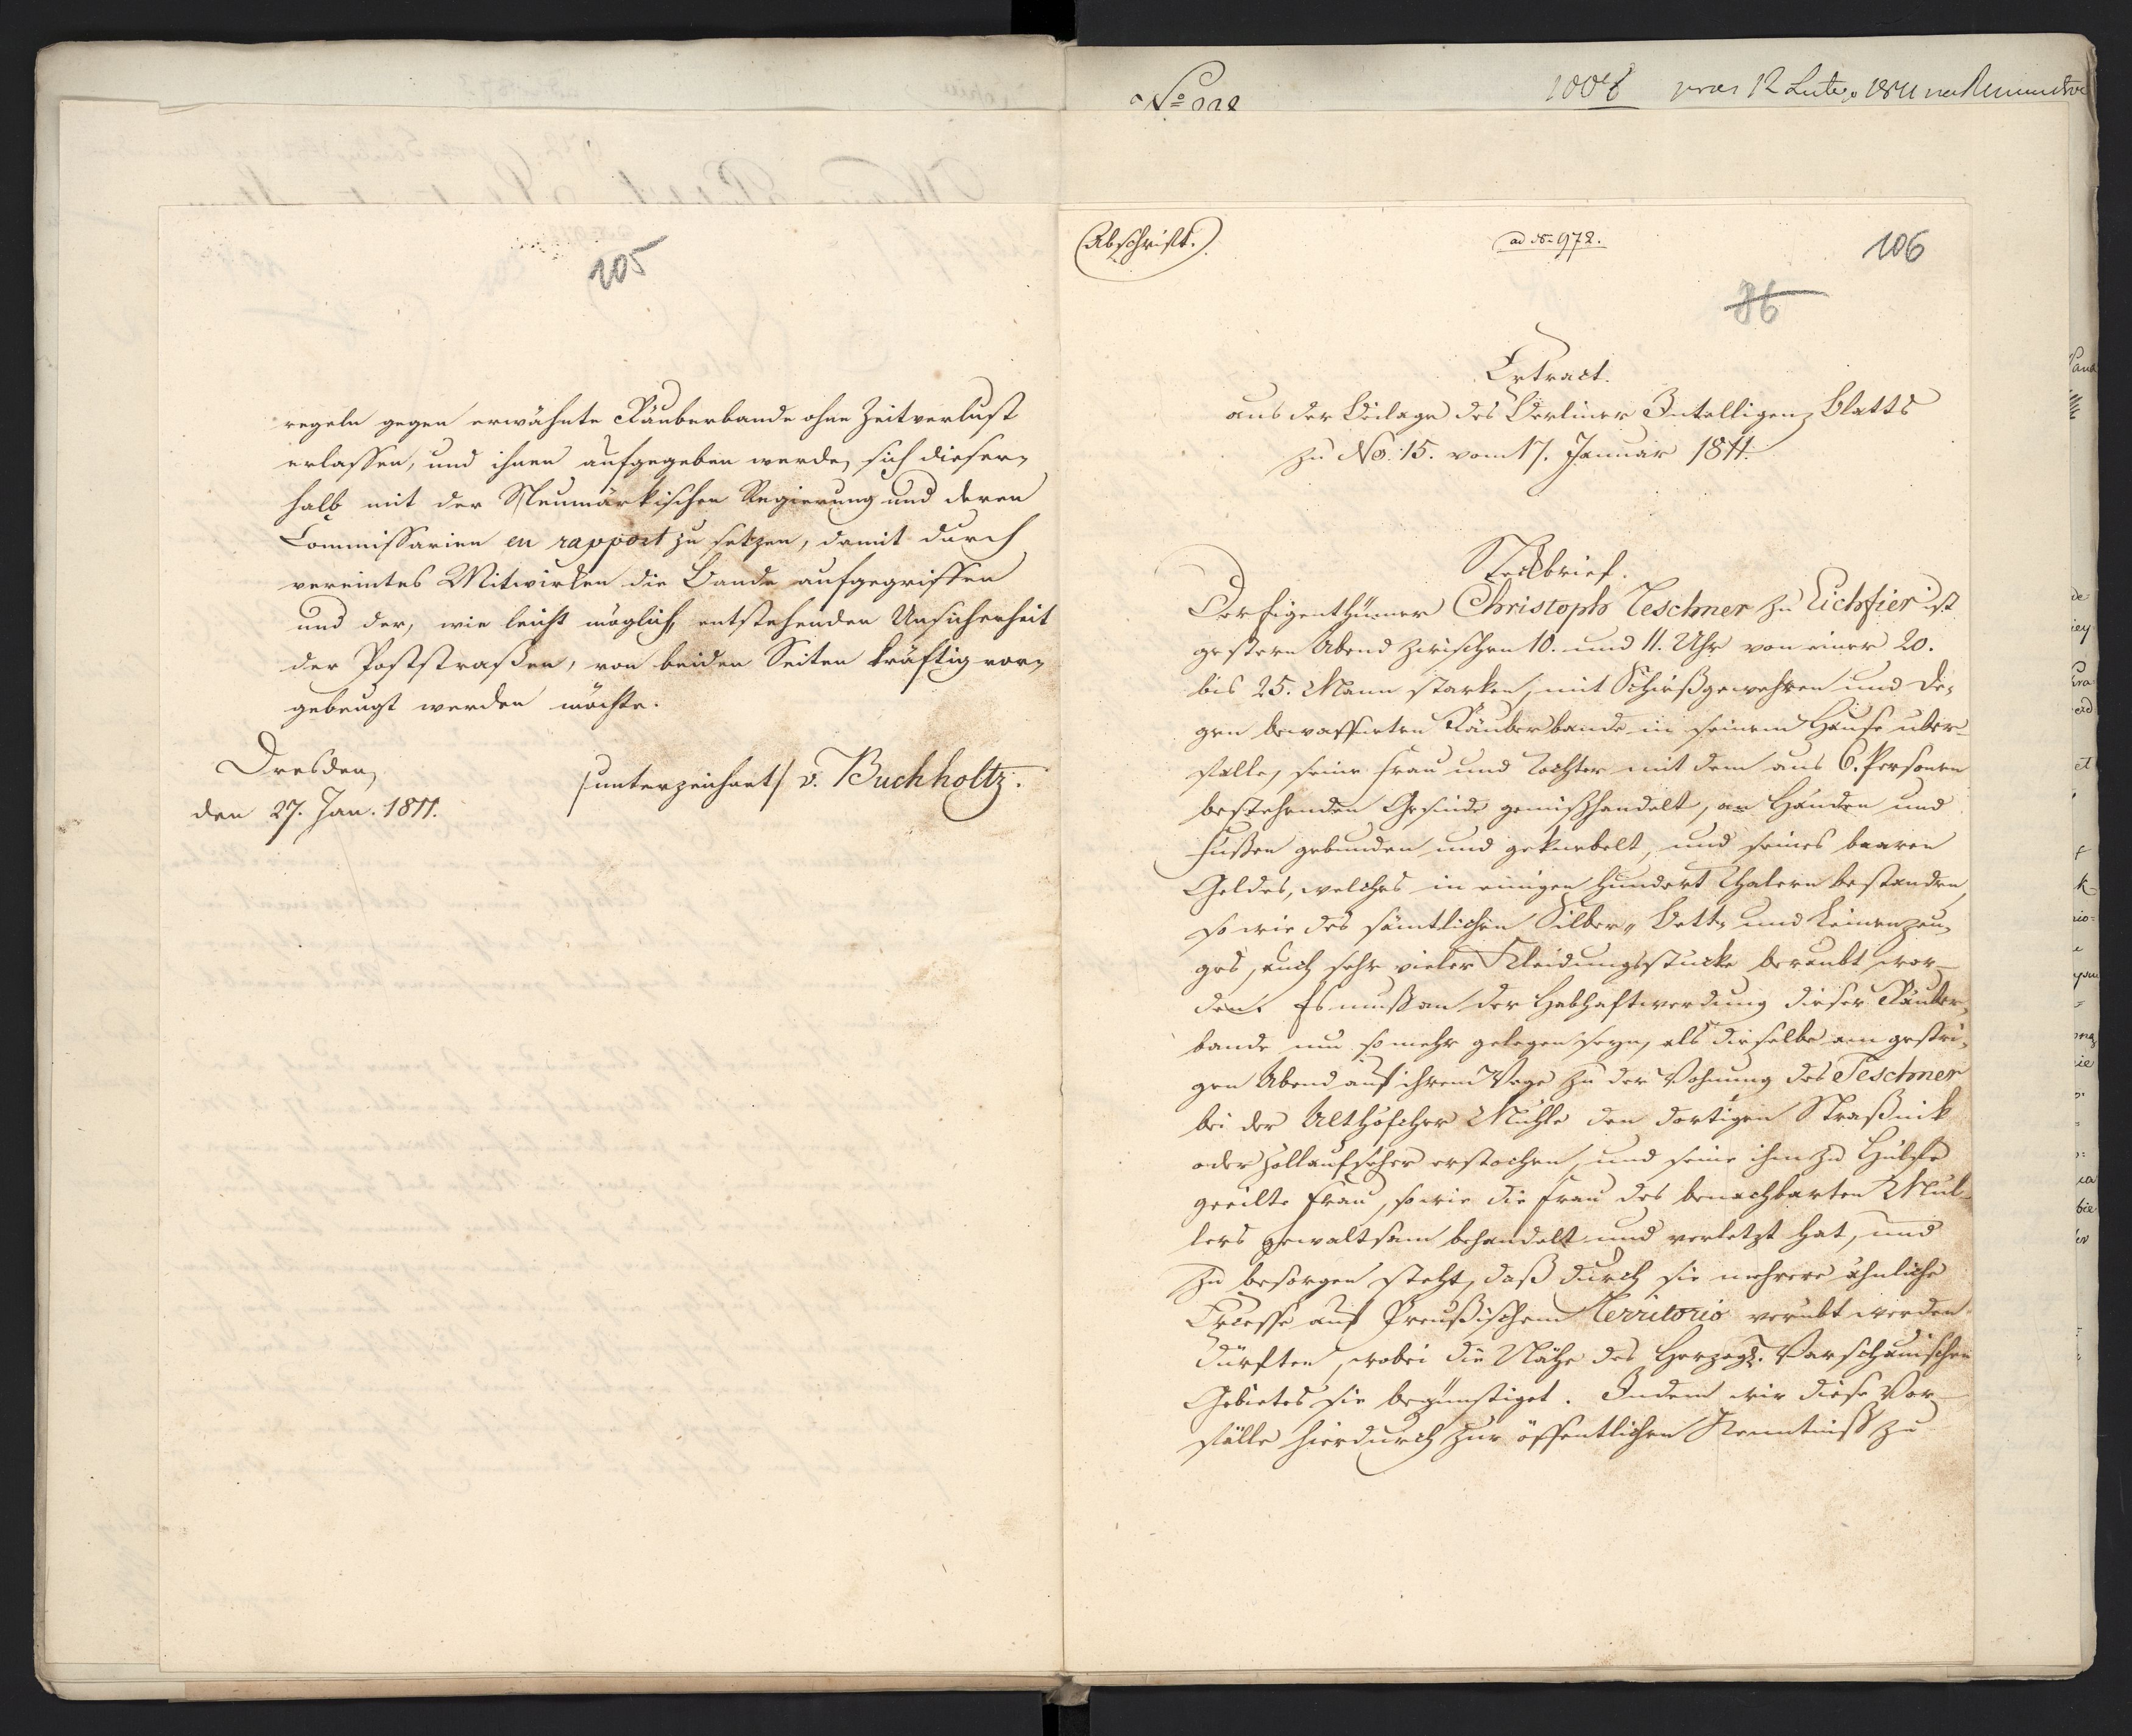 105
regeln gegen erwähnte Räuberbande ohne Zeitverlust
erlassen, und ihnen aufgegeben werde, sich dieser„
halb mit der Neumärkischen Regierung und deren
Commissarien en rapport zu setzen, damit durch
vereintes Mitwirken die Bande aufgegriffen
und der, wie leicht möglich, entstehenden Unsicherheit
der Poststraßen, von beiden Seiten kräftig vor„
gebeugt werden möchte.
Dresden,
den 27. Jan. 1811.
/unterzeichnet/ v. Buchholtz.
No
12 Lutego 1811
(Abschrift.)
ad No 972.
106
86
Extract.
aus der Beilage des Berliner Intelligenz Blatts
zu No. 15. vom 17. Januar 1811.
Steckbrief.
Der Eigenthümer Christoph Teschner zu Eichfier ist
gestern Abend zwischen 10. und 11. Uhr von einer 20.
bis 25. Mann starken, mit Schießgewehren und De„
gen bewaffneten Räuberbande in seinem Hause über-
falle, seine Frau und Tochter mit dem aus 6. Personen
bestehenden Gesinde gemißhandelt, an Händen und
Füßen gebunden und geknebelt, und seines baaren
Geldes, welches in einigen Hundert Thalern bestanden,
so wie des sämtlichen Silber„ Bett„ und Leinenzeu„
ges, auch sehr vieler Kleidungsstücke beraubt wor-
den. Es muß an der Habhaftwerdung dieser Räuber„
bande um so mehr gelegen seyn, als dieselbe am gestri„
gen Abend auf ihrem Wege zu der Wohnung des Teschner
bei der Althöfcher Mühle den dortigen Straßnik
oder Zollaufseher erstochen, und seine ihm zu Hülfe
geeilte Frau, so wie die Frau des benachbarten Mül-
lers gewaltsam behandelt und verletzt hat, und
zu besorgen steht, daß durch sie mehrere ähnliche
Excesse auf Preußischem Territorio verübt werden
dürften, wobei die Nähe des Herzogl. Warschauischen
Gebietes sie begünstiget. Indem wir diese Vor-
fälle hierdurch zur öffentlichen Kenntniß zu